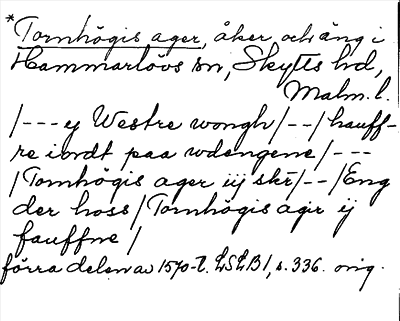 *Tornhögis ager, åker och äng i
Hammarlövs sn, Skytts hd,
Malm. l.
/---ej Westre wongh/--/hauff-
re iordt paa wdengene/---
/Tornhögis ager iij skr/--/Eng
der hoss/Tornhögis agir ij
fauffne/
förra delen av 1570-t. LSLB1, s. 336. orig.